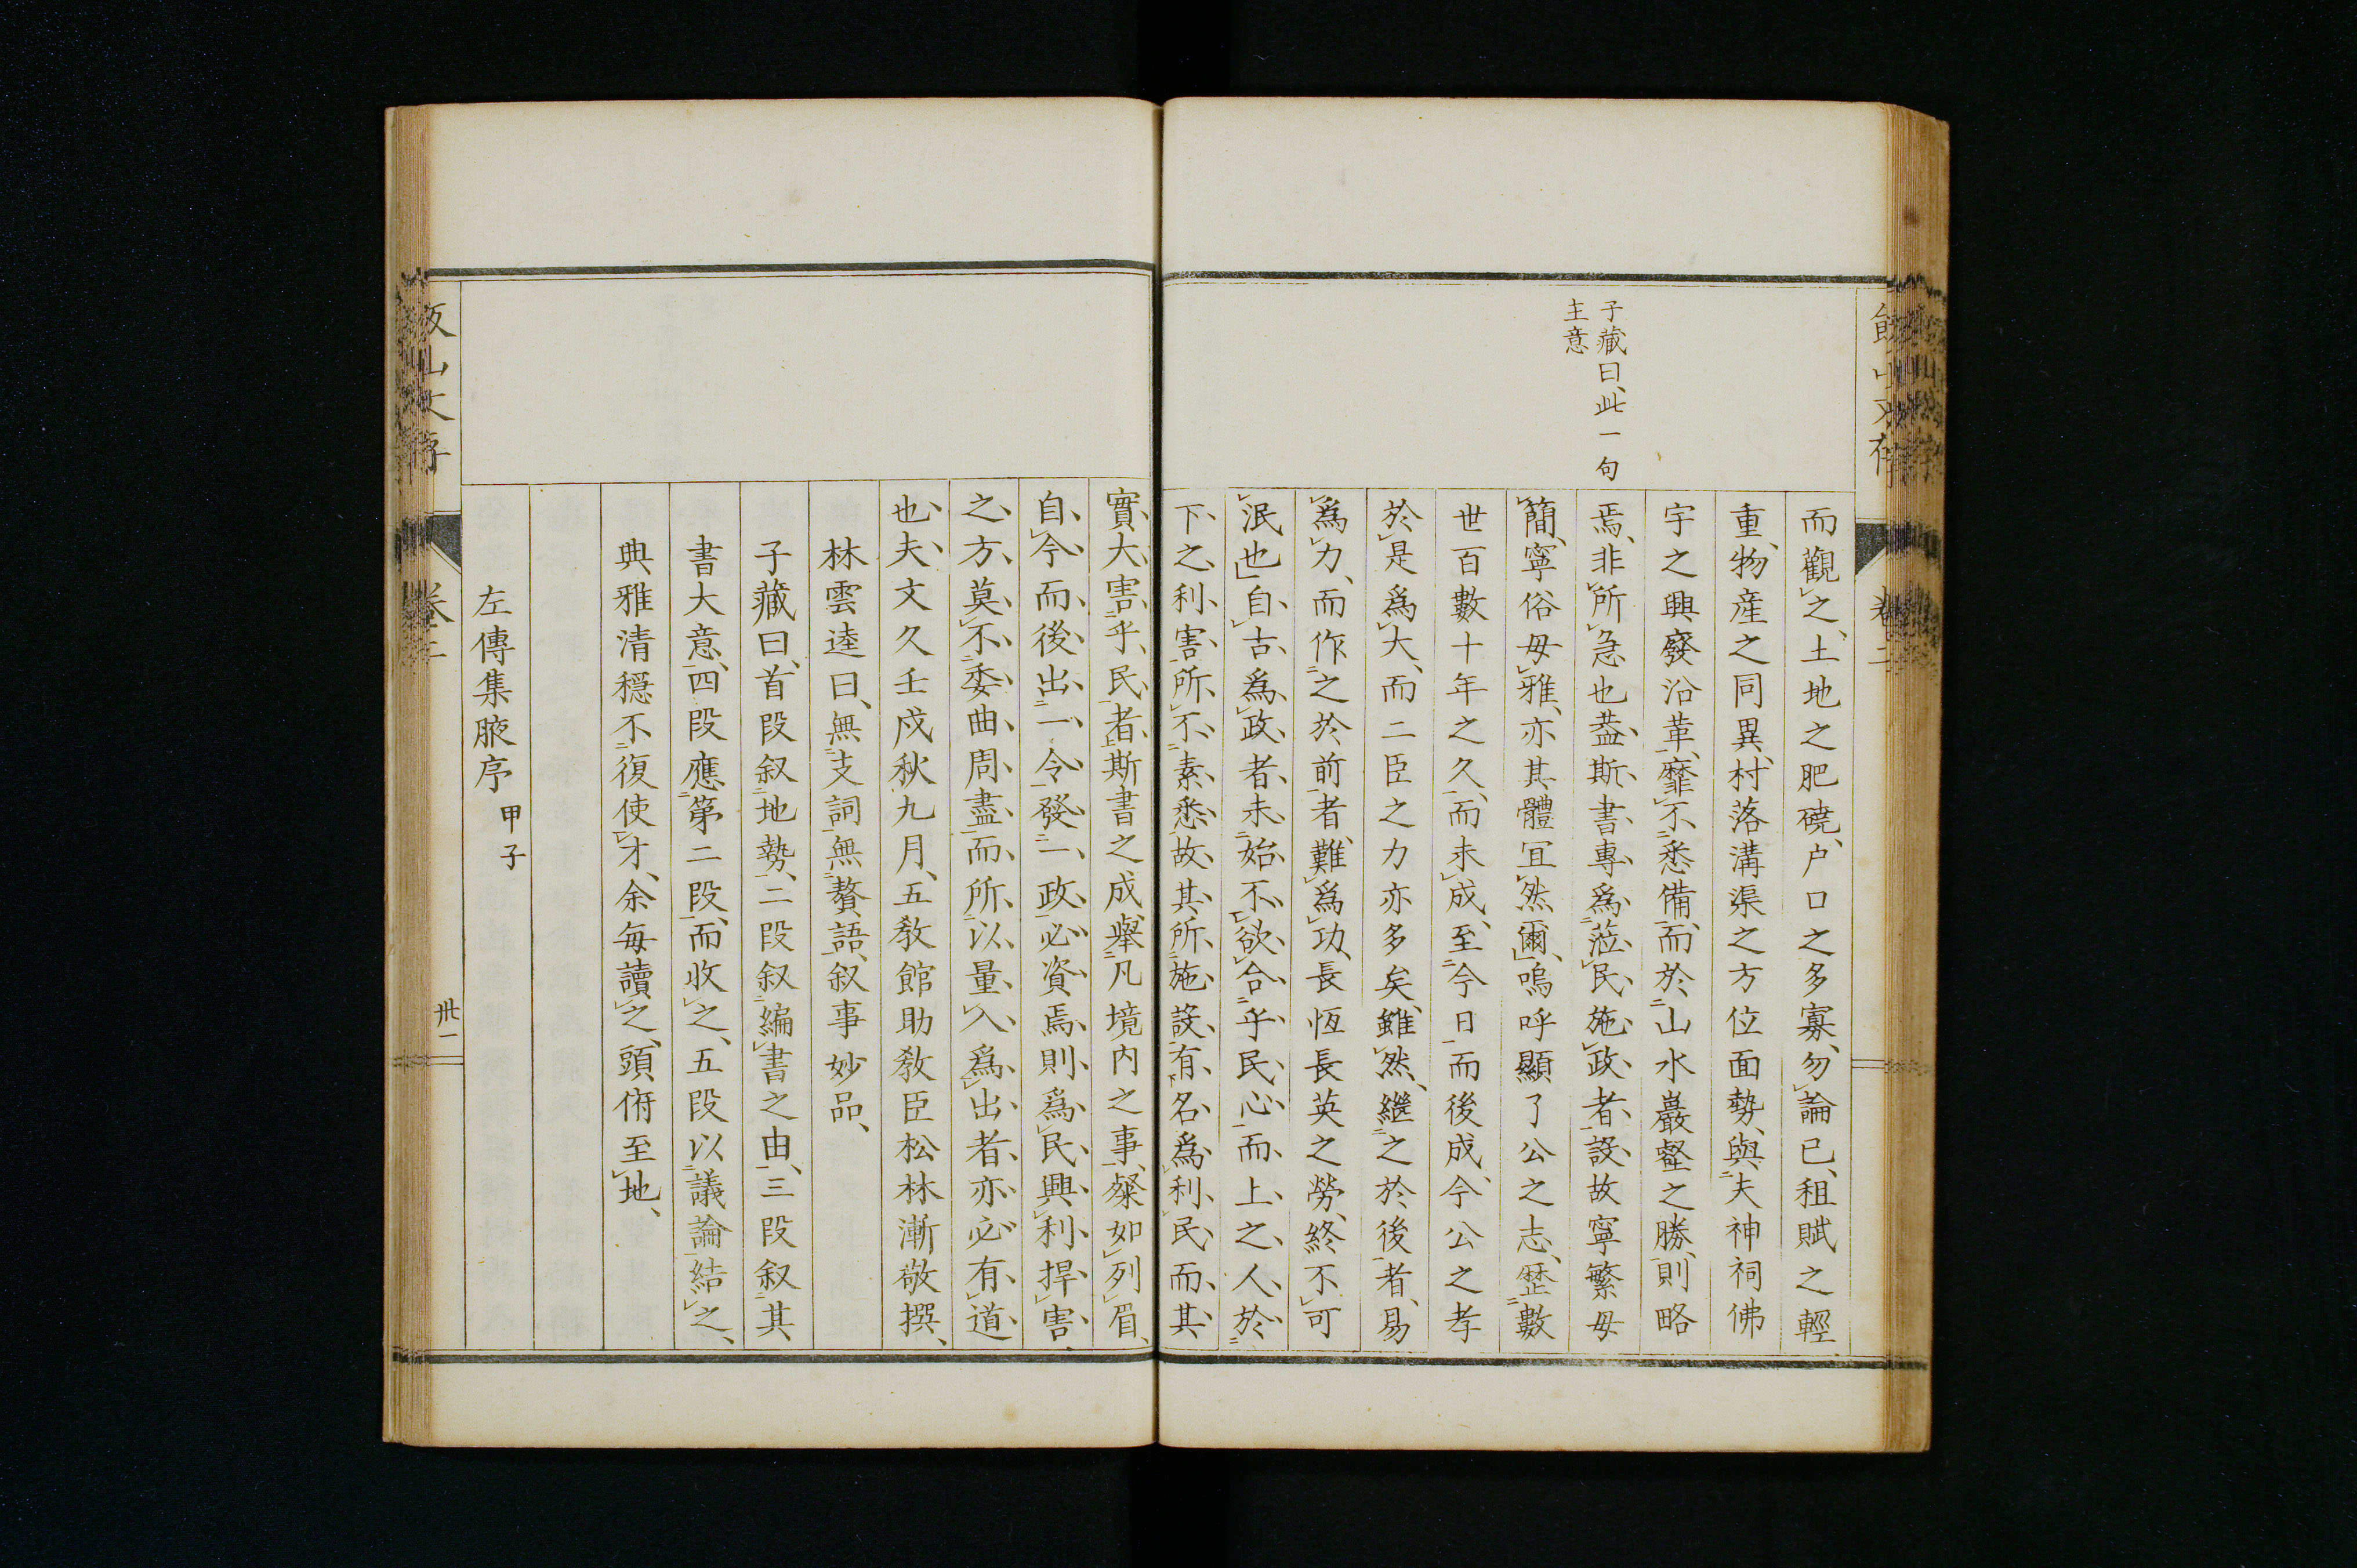 子藏曰、此一句
主意
而觀之、土地之肥磽、户口之多寡、勿論已、租賦之輕
重、物産之同異、村落溝渠之方位面勢、與夫神祠佛
宇之興廢沿革、靡不悉備、而於山水巖壑之勝、則略
焉、非所急也、葢斯書專爲莅民施政者設、故寧繁毋
簡、寧俗毋雅、亦其體冝然爾、嗚呼顯了公之志、歷數
世百數十年之久、而未成、至今日而後成、今公之孝
於是爲大、而二臣之力亦多矣、雖然、繼之於後者、易
爲力、而作之於前者、難爲功、長恆長英之勞、終不可
泯也、自古爲政者、未始不欲合乎民心、而上之人、於
下之利害、所不素悉、故其所施設、有名爲利民、而其
實大害乎民者、斯書之成、舉凡境内之事、粲如列眉、
自今而後、出一令、發一政、必資焉、則爲民興利捍害、
之方、莫不委曲周盡、而所以量入爲出者、亦必有道
也夫、文久壬戌秋九月、五教館助教臣松林漸敬撰、
林雲逵曰、無支詞、無贅語、叙事妙品、
子藏曰、首段叙地勢、二段叙編書之由、三段叙其
書大意、四段應第二段、而收之、五段以議論結之、
典雅清穩、不復使才、余毎讀之、頭俯至地、
左傳集腋序 甲子
卷二
卅一